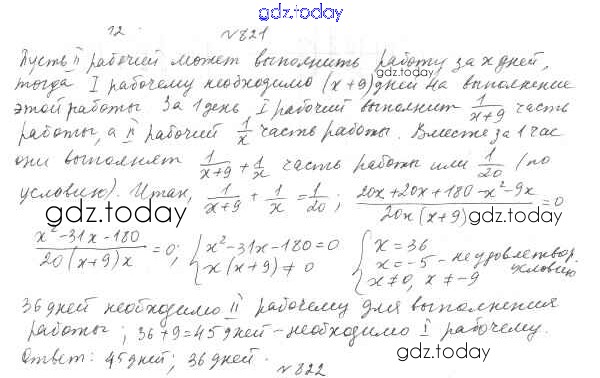 gdz.today
12. №821
Пусть II рабочий может выполнить работу за x дней,
gdz.today
тогда I рабочему необходимо (x+9) дней на выполнение
этой работы. За 1 день I рабочий выполнит 1/(x+9) часть
работы, а II рабочий 1/x часть работы. Вместе за 1 час
они выполнят 1/(x+9) + 1/x часть работы или 1/20 (по
условию). Итак, 1/(x+9) + 1/x = 1/20; (20x+20x+180-x²-9x)/(20x(x+9)) = 0
gdz.today gdz.today
(x²-31x-180)/(20(x+9)x) = 0; { x²-31x-180=0 { x=36
x(x+9)≠0 x=-5 - не удовлетвор.
x≠0, x≠-9 условию
36 дней необходимо II рабочему для выполнения
работы; 36+9=45 дней - необходимо I рабочему.
gdz.today
Ответ: 45 дней; 36 дней.
№822
gdz.today